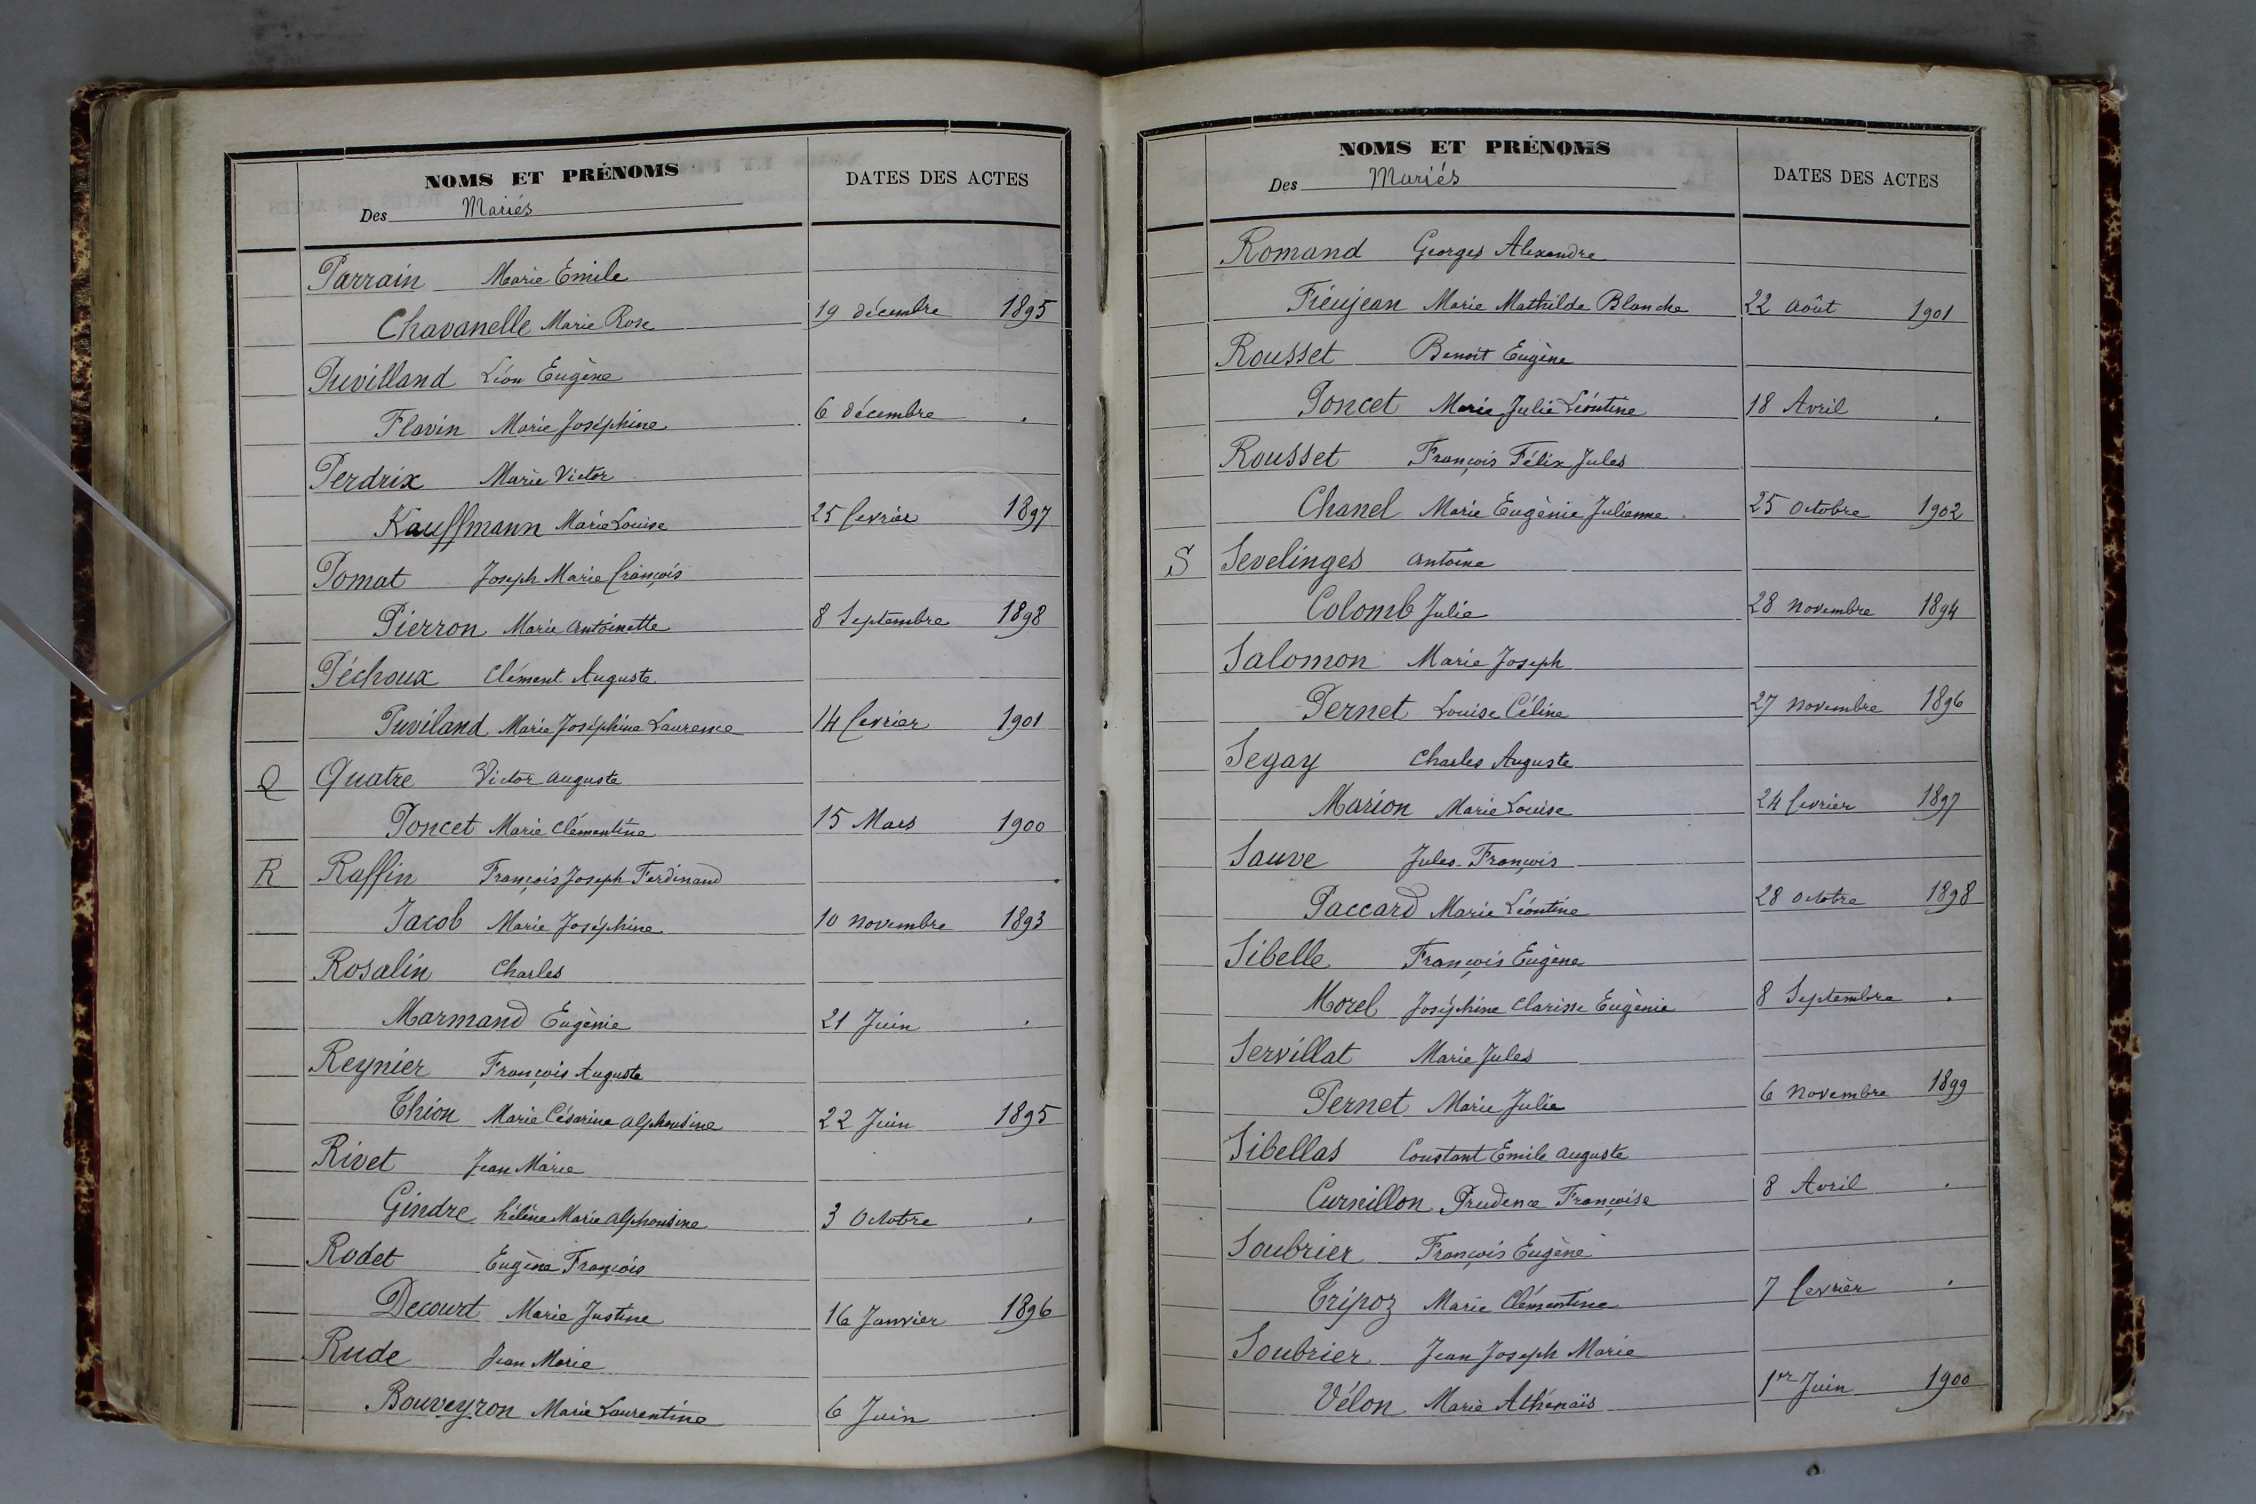 NOMS ET PRÉNOMS
Des Mariés
DATES DES ACTES
Parrain Marie Émile
Chavanelle Marie Rose 19 décembre 1895
Puvilland Léon Eugène
Flavin Marie Joséphine 6 décembre .
Perdrix Marie Victor
Kauffmann Marie Louise 25 fevrier 1897
Pomat Joseph Marie françois
Pierron Marie Antoinette 8 Septembre 1898
Péchoux Clément Auguste
Puviland Marie Joséphine Laurence 14 fevrier 1901
Q Quatre Victor Auguste
Poncet Marie Clémentine 15 Mars 1900
R Raffin François Joseph Ferdinand
Jacob Marie Joséphine 10 novembre 1893
Rosalin Charles
Marmand Eugènie 21 Juin .
Reynier François Auguste
Thion Marie Césarine Alphonsine 22 Juin 1895
Rivet Jean Marie
Gindre hélène Marie Alphonsine 3 Octobre .
Rodet Eugène François
Decourt Marie Justine 16 Janvier 1896
Rude Jean Marie
Bouveyron Marie Laurentine 6 Juin .
NOMS ET PRÉNOMS
Des Mariés
DATES DES ACTES
Romand Georges Alexandre
Fieujean Marie Mathilde Blanche 22 Août 1901
Rousset Benoît Eugène
Poncet Marie Julie Léontine 18 Avril .
Rousset François Félix Jules
Chanel Marie Eugènie Julienne 25 Octobre 1902
S Sevelinges Antoine
Colomb Julie 28 novembre 1894
Salomon Marie Joseph
Pernet Louise Céline 27 novembre 1896
Segay Charles Auguste
Marion Marie Louise 24 fevrier 1897
Sauve Jules François
Paccard Marie Léontine 28 Octobre 1898
Sibelle François Eugène
Morel Joséphine Clarisse Eugènie 8 Septembre .
Servillat Marie Jules
Pernet Marie Julie 6 novembre 1899
Sibellas Constant Emile Auguste
Curnillon Prudence Françoise 8 Avril .
Soubrier François Eugène
Tripoz Marie Clémentine 7 fevrier .
Soubrier Jean Joseph Marie
Vélon Marie Athénaïs 1er Juin 1900